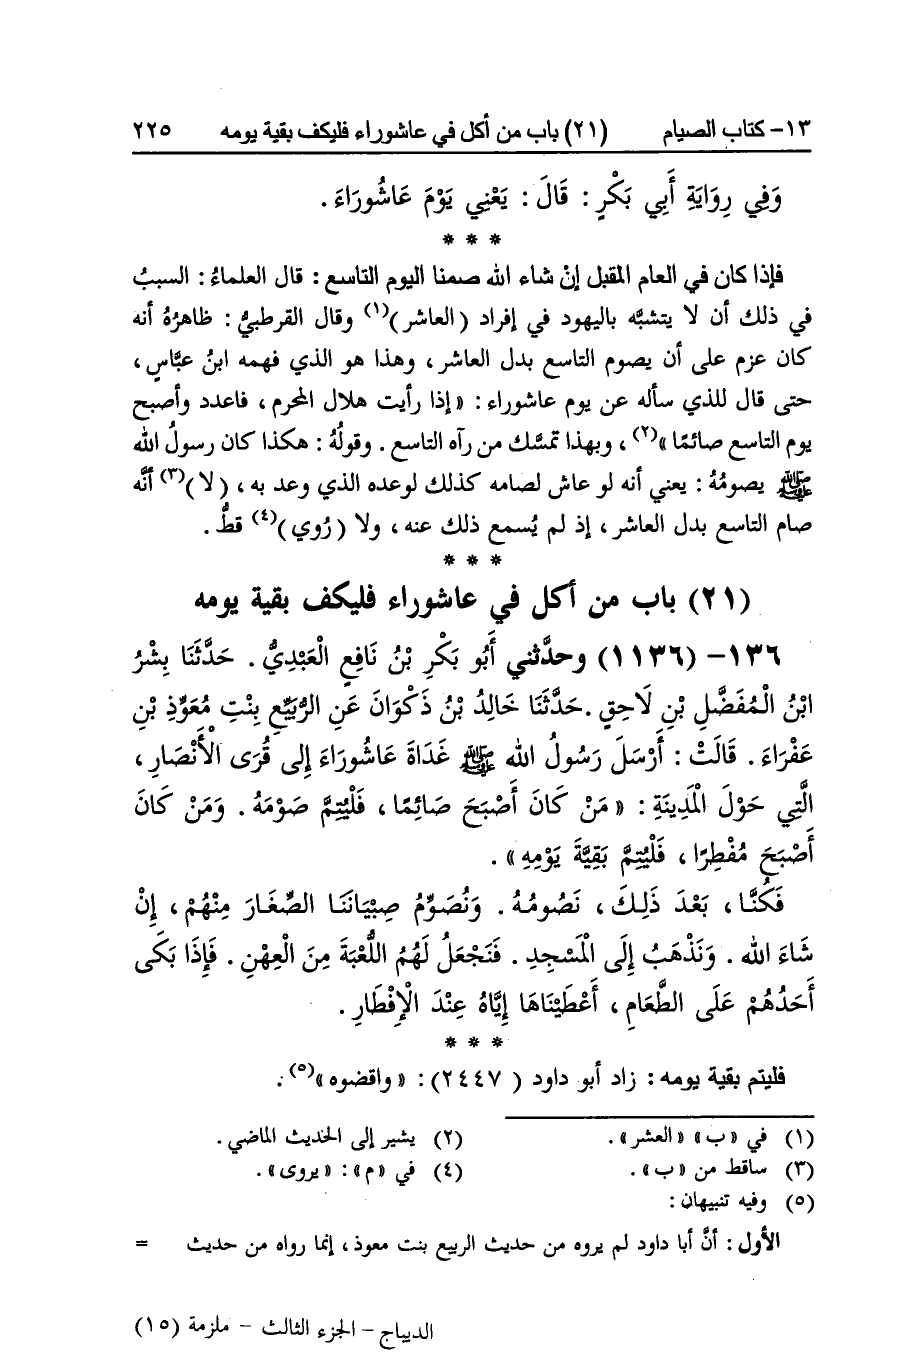 ١٣- كتاب الصيام (٢١) باب من أكل في عاشوراء فليكف بقية يومه ٢٢٥
وَفِي رِوَايَةِ أَبِي بَكْرٍ : قَالَ : يَعْنِي يَوْمَ عَاشُورَاءَ .
* * *
فإذا كان في العام المقبل إنْ شاء الله صمنا اليوم التاسع : قال العلماءُ : السببُ
في ذلك أن لا يتشبَّه باليهود في إفراد (العاشر)(١) وقال القرطبيُّ : ظاهرُهُ أنه
كان عزم على أن يصوم التاسع بدل العاشر ، وهذا هو الذي فهمه ابنُ عبَّاسٍ ،
حتى قال للذي سأله عن يوم عاشوراء : «إذا رأيت هلال المحرم ، فاعدد وأصبح
يوم التاسع صائمًا»(٢) ، وبهذا تمسَّك من رآه التاسع . وقولُهُ : هكذا كان رسولُ الله
ﷺ يصومُهُ : يعني أنه لو عاش لصامه كذلك لوعده الذي وعد به ، (لا)(٣) أنَّه
صام التاسع بدل العاشر ، إذ لم يُسمع ذلك عنه ، ولا (رُوي)(٤) قطُّ .
* * *
(٢١) باب من أكل في عاشوراء فليكف بقية يومه
١٣٦- (١١٣٦) وحدَّثني أَبُو بَكْرِ بْنُ نَافِعٍ الْعَبْدِيُّ . حَدَّثَنَا بِشْرُ
ابْنُ الْمُفَضَّلِ بْنِ لَاحِقٍ . حَدَّثَنَا خَالِدُ بْنُ ذَكْوَانَ عَنِ الرُّبَيِّعِ بِنْتِ مُعَوِّذِ بْنِ
عَفْرَاءَ . قَالَتْ : أَرْسَلَ رَسُولُ الله ﷺ غَدَاةَ عَاشُورَاءَ إِلى قُرَى الْأَنْصَارِ ،
الَّتِي حَوْلَ الْمَدِينَةِ : « مَنْ كَانَ أَصْبَحَ صَائِمًا ، فَلْيُتِمَّ صَوْمَهُ . وَمَنْ كَانَ
أَصْبَحَ مُفْطِرًا ، فَلْيُتِمَّ بَقِيَّةَ يَوْمِهِ» .
فَكُنَّا ، بَعْدَ ذَلِكَ ، نَصُومُهُ . وَنُصَوِّمُ صِبْيَانَنَا الصِّغَارَ مِنْهُمْ ، إِنْ
شَاءَ الله . وَنَذْهَبُ إِلَى الْمَسْجِدِ . فَنَجْعَلُ لَهُمُ اللُّعْبَةَ مِنَ الْعِهْنِ . فَإِذَا بَكَى
أَحَدُهُمْ عَلَى الطَّعَامِ ، أَعْطَيْنَاهَا إِيَّاهُ عِنْدَ الْإِفْطَارِ .
* * *
فليتم بقية يومه : زاد أبو داود ( ٢٤٤٧) : « واقضوه»(٥) .
(١) في «ب» «العشر» . (٢) يشير إلى الحديث الماضي .
(٣) ساقط من «ب» . (٤) في «م» : «يروى» .
(٥) وفيه تنبيهان :
الأول : أنَّ أبا داود لم يروه من حديث الربيع بنت معوذ ، إنما رواه من حديث =
الديباج - الجزء الثالث - ملزمة (١٥)